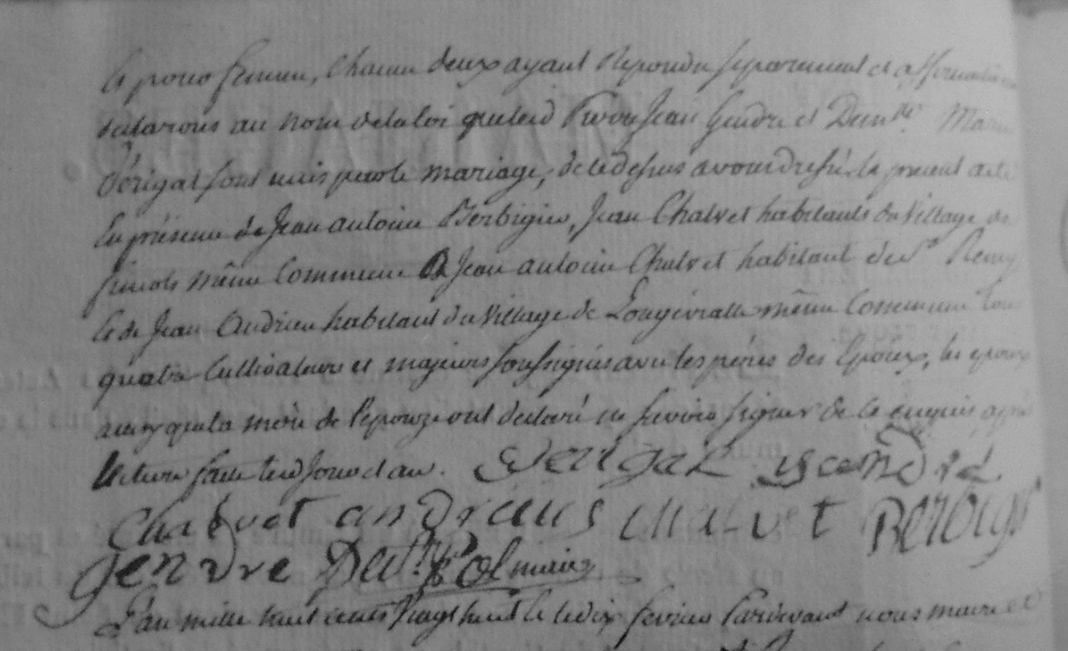 et pour femme, Chacun deux ayant Repondu separement et affirmativement
declarons au nom dela loi que led Pierre Jean Gendre et Dem.lle Marie
Dérigal sont unis par le mariage, de tE dessus avons dressé le present acte
En présence de Jean antoine Berbigier, Jean Chalvet habitants du Village de
même Commune Jean antoine Chalvet habitant de St Remy
Et de Jean Andrieu habitant du Village de même Commune tous
quatre Cultivateurs et majeurs soussignés avec les péres des Epoux, les epoux
ainsy que la mére de l'epouze ont declaré ne savoir signer de ce enquis après
lecture faite led Jour et an. Derigal gendre
Chalvet andraius chalvet Berbigé
Gendre maire
L'an mille huit cents Vingt huit le dix fevrier Pardevant nous maire et